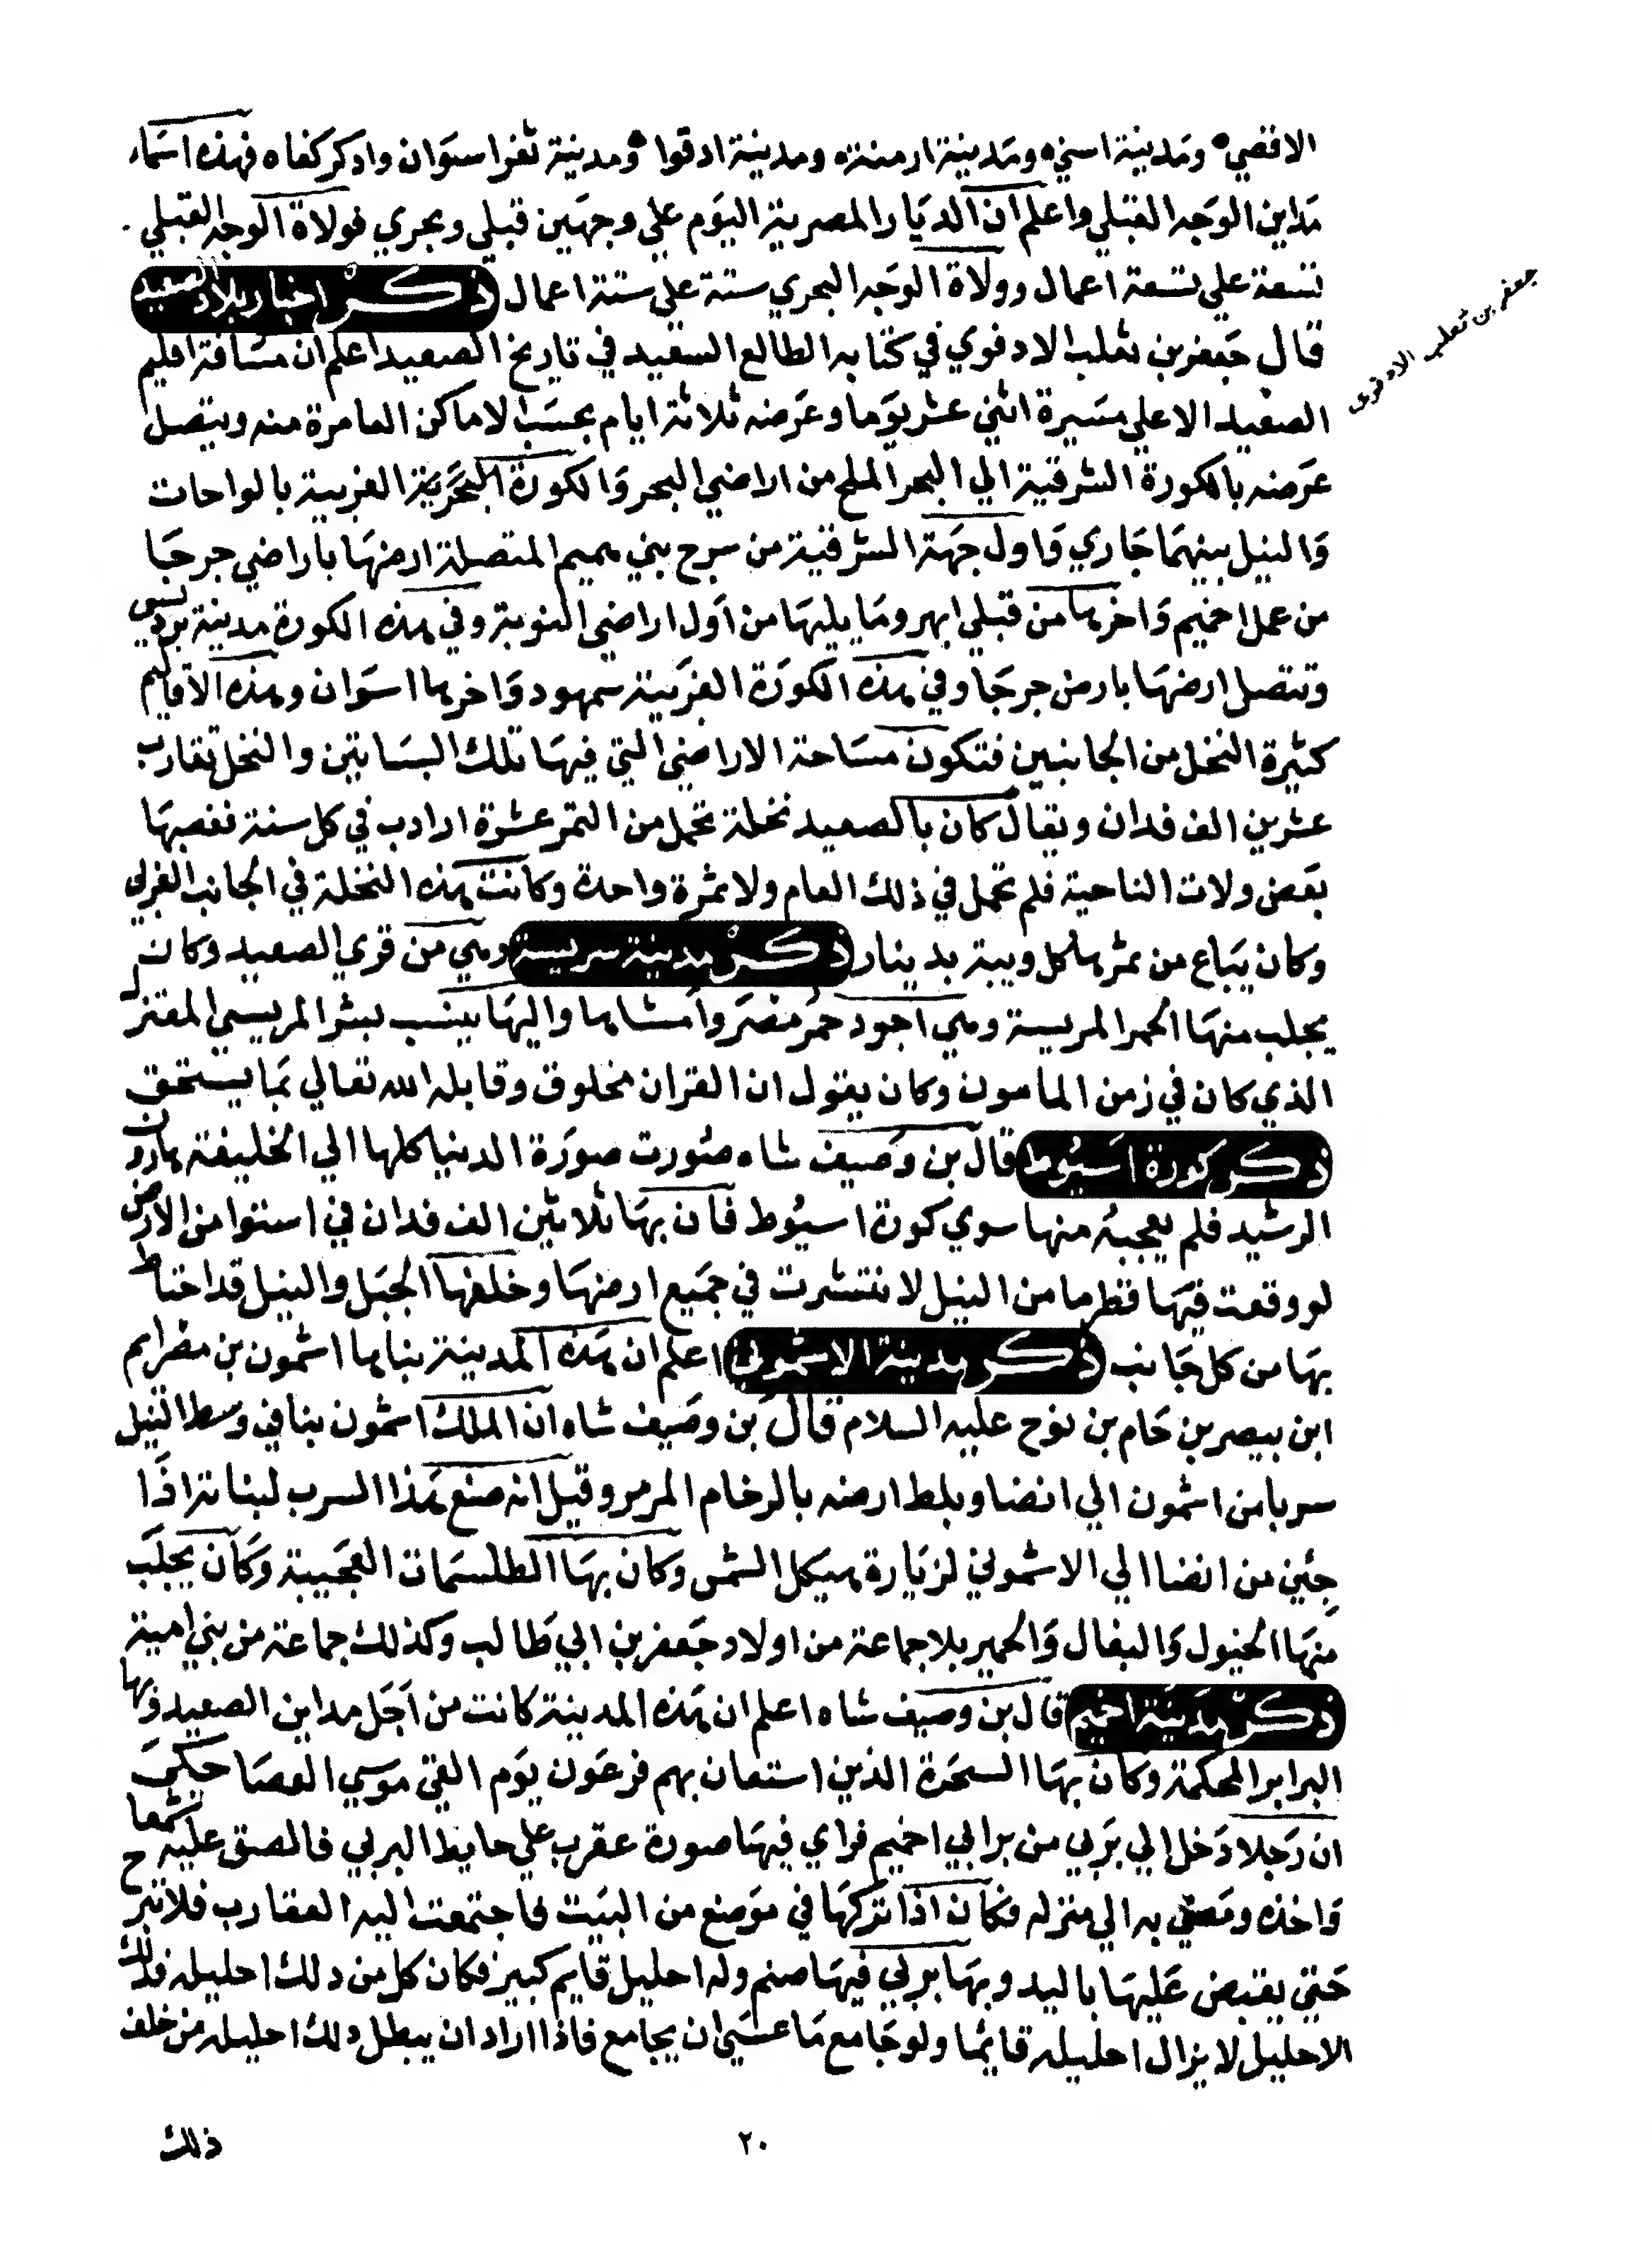 الاقصي ومدينة اسني ومدينة ارمنت ومدينة ادفوا ومدينة ثغر اسوان وادكر كفاه فهذه اسماء
مداين الوجه القبلي واعلم ان الديار المصرية اليوم علي وجهين قبلي وبحري فولاة الوجه القبلي
تسعة علي تسعة اعمال وولاة الوجه البحري ستة علي ستة اعمال ذكر اخبار بلاد الصعيد
قال جعفر بن ثعلب الادفوي في كتابه الطالع السعيد في تاريخ الصعيد اعلم ان مسافة اقليم
جعفر بن ثعلب الادفوى
الصعيد الاعلي مسيرة اثني عشر يوما وعرضه ثلاثة ايام بحسب الاماكن العامرة منه ويتصل
عرضه بالكورة الشرقية الي البحر الملح من اراضي البحر والكورة البحرية الغربية بالواحات
والنيل بينهما جاري واول جهة الشرقية من سرج بني هميم المتصلة ارضها باراضي جرجا
من عمل اخميم واخرها من قبلي ابهر وما يليها من اول اراضي النوبة وفي هذه الكورة مدينة برديس
وتتصل ارضها بارض جرجا وفي هذه الكورة الغربية سمهود واخرها اسوان وهذه الاقاليم
كثيرة النخل من الجانبين فتكون مساحة الاراضي التي فيها تلك البساتين والنخل تقارب
عشرين الف فدان ويقال كان بالصعيد نخلة تحمل من التمر عشرة ارادب في كل سنة فغصبها
بعض ولات الناحية فلم تحمل في ذلك العام ولا ثمرة واحدة وكانت هذه النخلة في الجانب الغربي
وكان يباع من ثمرها كل ويبة بدينار ذكر مدينة مريسة وهي من قري الصعيد وكان
يجلب منها الحمر المريسة وهي اجود حمر مصر وامشاها واليها ينسب بشر المريسي المعتزل
الذي كان في زمن المامون وكان يقول ان القران مخلوق وقابله الله تعالي بما يستحق
ذكر كورة اسيوط قال بن وصيف شاه صورت صورة الدنيا كلها الي الخليفة هارون
الرشيد فلم يعجبه منها سوي كورة اسيوط فان بها ثلاثين الف فدان في استوا من الارض
لو وقعت فيها قطر ما من النيل لانتشرت في جميع ارضها وخلفها الجبل والنيل قد احتاط
بها من كل جانب ذكر مدينة الاشمون اعلم ان هذه المدينة بناها اشمون بن مصرايم
ابن بيصر بن حام بن نوح عليه السلام قال بن وصيف شاه ان الملك اشمون بنا في وسط النيل
سربا من اشمون الي انصنا وبلط ارضه بالرخام المرمر وقيل انه صنع هذا السرب لبناته اذا
جئين من انصنا الي الاشموني لزيارة هيكل الشمس وكان بها الطلسمات العجيبة وكان يجلب
منها الخيول والبغال والحمير بلا جماعة من اولاد جعفر بن ابي طالب وكذلك جماعة من بني امية
ذكر مدينة اخميم قال بن وصيف شاه اعلم ان هذه المدينة كانت من اجل مداين الصعيد وبها
البرابر المحكمة وكان بها السحرة الذين استعان بهم فرعون يوم القي موسي العصا حكي
ان رجلا دخل الي بربي من برابي اخميم فراي فيها صورة عقرب علي حايط البربي فالصق عليه شمعا
واخذه ومضي به الي منزله فكان اذا تركها في موضع من البيت اجتمعت اليه العقارب فلا تبرح
حتي يقبض عليها باليد وبها بربي فيها صنم وله احليل قايم كبير فكان كل من دلك احليله فذلك
الاحليل لا يزال احليله قايما ولو جامع ما عسي ان يجامع فاذا اراد ان يبطل دلك احليله من خلف
ذلك
٢٠